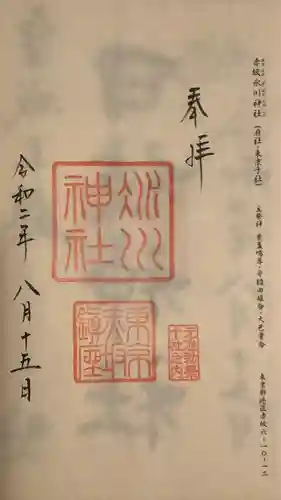 赤坂氷川神社(府社・東京十社)
主祭神 素盞嗚尊・奇稲田姫命・大己貴命
東京都港区赤坂六ー一〇ー一二
奉拝
氷川神社
東京赤坂鎮座
令和二年 八月十五日